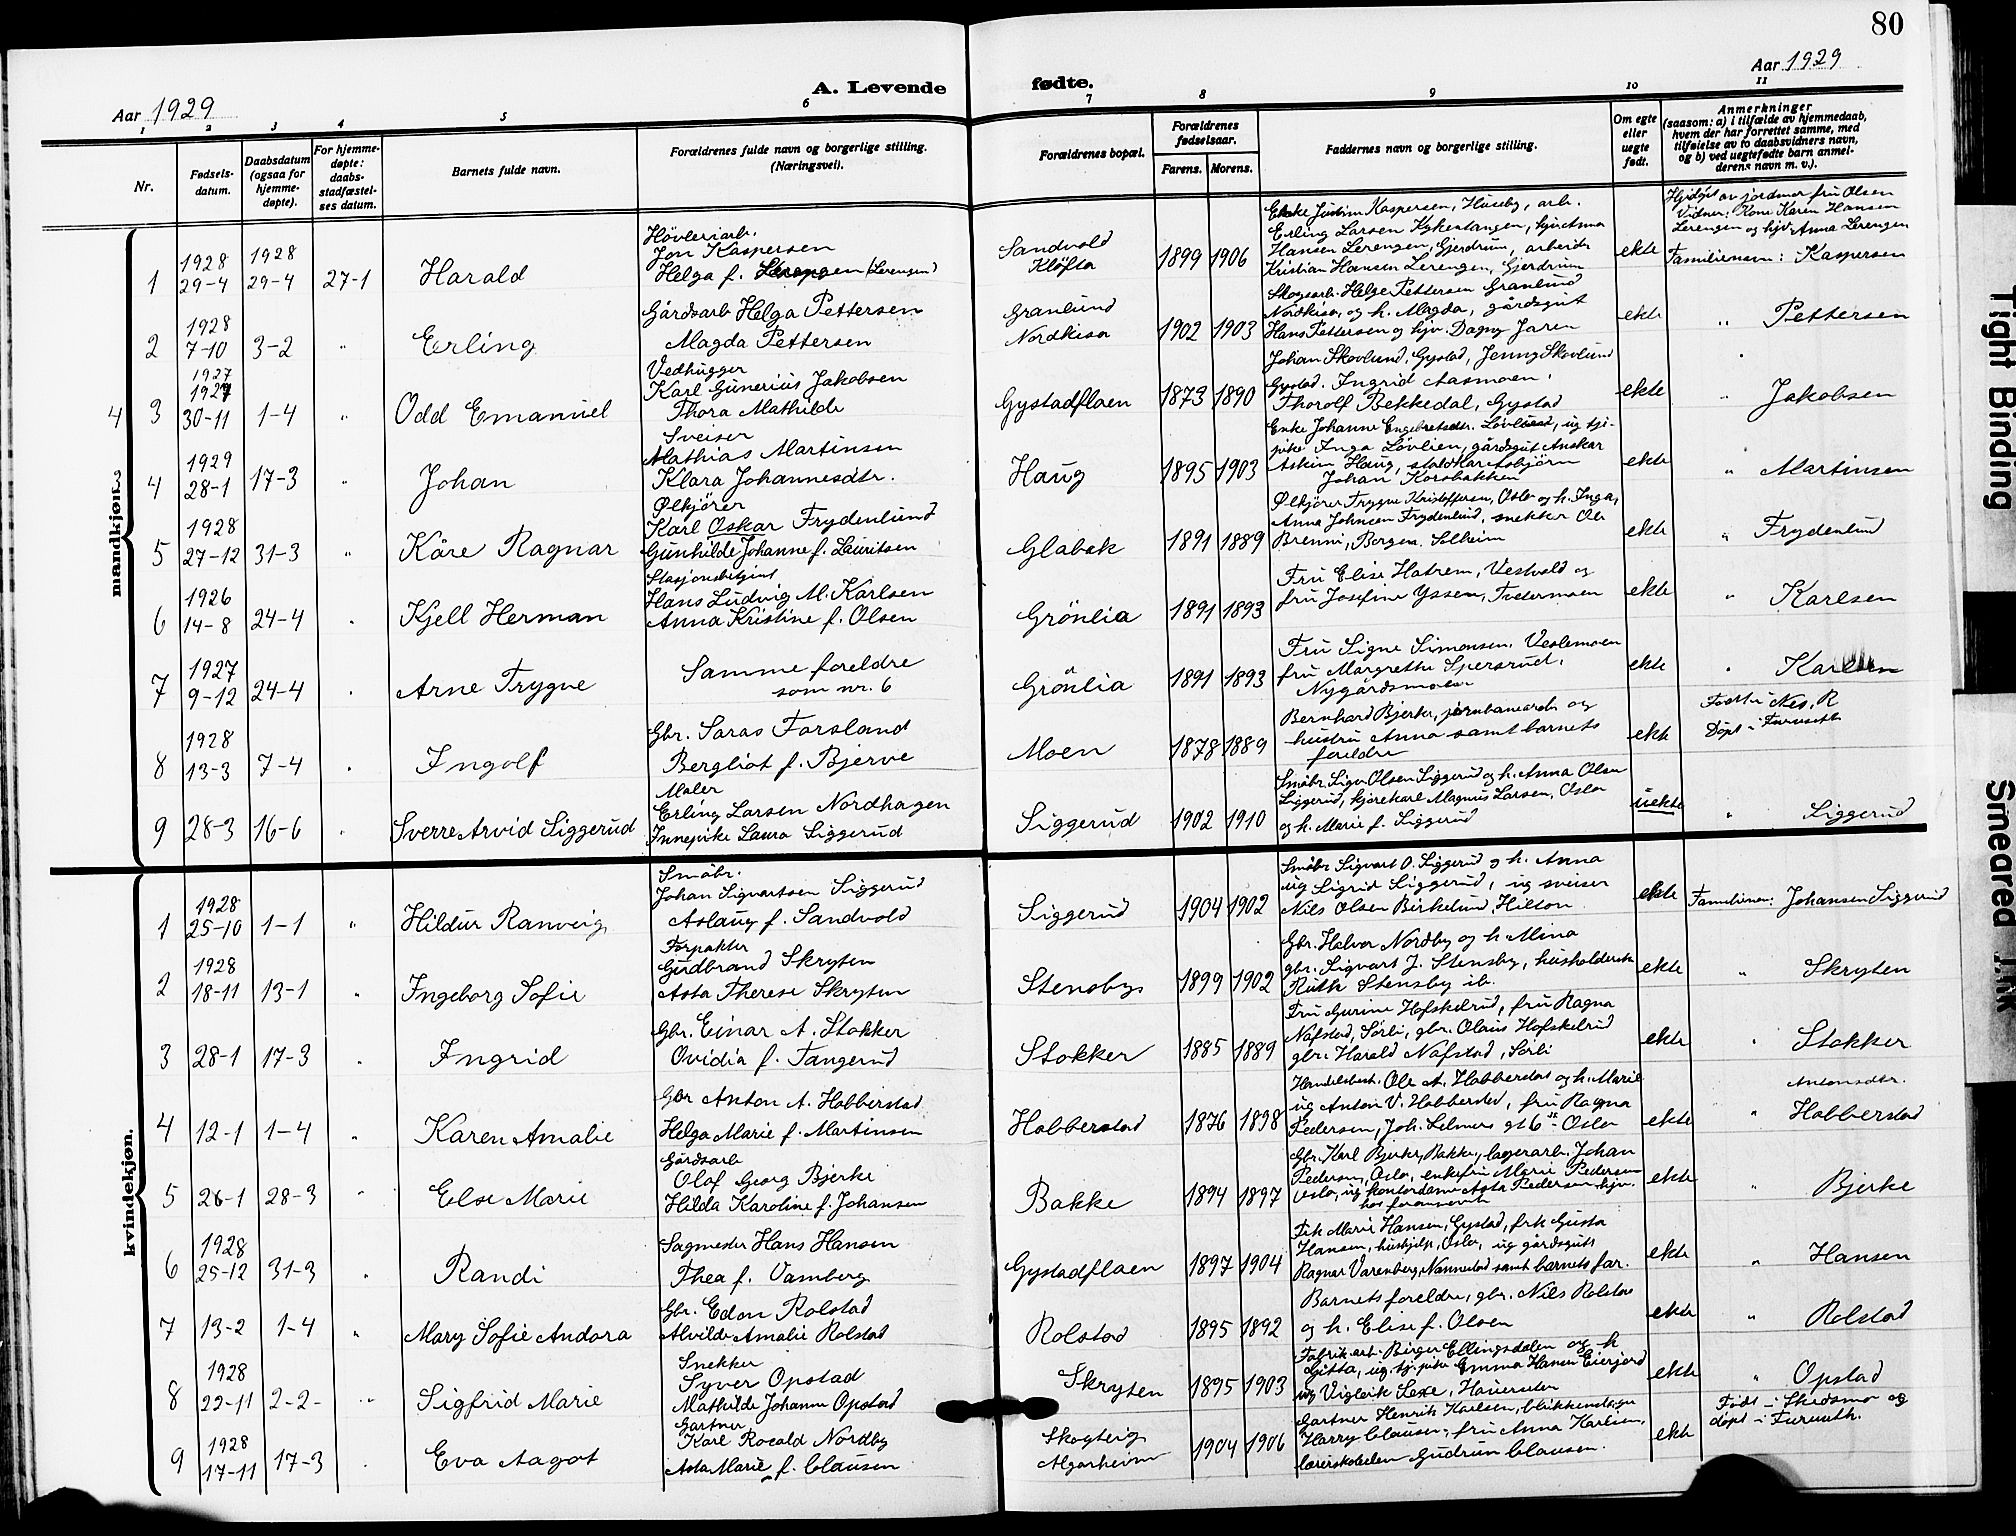 80
Aar 1929
A. Levende fødte.
Aar 1929
1 2 3 4 5 6 7 8 9 10 11
Nr.
Fødsels-
datum.
Daabsdatum
(ogsaa for
hjemme-
døpte).
For hjemme-
døpte:
daabs-
stadfæstel-
ses datum.
Barnets fulde navn.
Forældrenes fulde navn og borgerlige stilling.
(Næringsvei).
Forældrenes bopæl.
Forældrenes
fødselsaar.
Farens. Morens.
Faddernes navn og borgerlige stilling.
Om egte
eller
uegte
født.
Anmerkninger
(saasom: a) i tilfælde av hjemmedaab,
hvem der har forrettet samme, med
tilføielse av to daabsvidners navn,
og b) ved uegtefødte barn anmel-
derens navn m. v.).
mandkjøn.
1
1928
29-4
1928
29-4
27-1
Harald
Høvleriarb.
Jon Kaspersen
Helga f. Lerengen (Lerengen)
Sandvold
Kløfta
1899 1906
Enke Justine Kaspersen, Huseby, arb.
Erling Larsen Kykestangen, hjv. Anna
Hansen Lerengen, Gjerdrum, arbeider
Kristian Hansen Lerengen, Gjerdrum
ekte
Hjdøpt av jordmor fru Olsen
Vidner: Kone Karen Hansen
Lerengen og hjv. Anna Lerengen
Familienavn: Kaspersen
2
1928
7-10
3-2
"
Erling
Gårdsarb Helga Pettersen
Magda Pettersen
Granlund
Nordkisa
1902 1903
Skogsarb. Helge Pettersen Granlund
Nordkisa, og h. Magda, gårdsgut
Hans Pettersen og hjv. Dagny Jaren
ekte
" Pettersen
4
3
1927
1927
30-11
1-4
"
Odd Emanuel
Vedhugger
Karl Gunerius Jakobsen
Thora Mathilde
Gystadflaen
1873 1890
Johan Skovlund, Gystad, Jenny Skovlund
Gystad. Ingrid Aasmoen,
Thorolf Bekkedal, Gystad
ekte
" Jakobsen
3
4
1929
28-1
17-3
"
Johan
Sveiser
Mathias Martinsen
Klara Johannesdtr.
Haug
1895 1903
Enke Johanne Engebretsdtr. Løvlund, ug tj.-
pike Inga Løvlien, gårdsgut Anskar
Askim Haug, staldkar Asbjørn
Johan Korsbakken
ekte
" Martinsen
5
1928
27-12
31-3
"
Kåre Ragnar
Ølkjører
Karl Oskar Frydenlund
Gunhilde Johanne f. Lauritsen
Glabak
1891 1889
Ølkjører Trygve Kristoffersen, Oslo og h. Inga,
Anna Johnsen Frydenlund, snekker Ole
Brenni, Borgen, Solheim
ekte
" Frydenlund
6
1926
14-8
24-4
Kjell Herman
Stasjonsbetjent
Hans Ludvig M. Karlsen
Anna Kristine f. Olsen
Grönlia
1891 1893
Fru Elise Hatrem, Vestvold og
fru Josefine Yssen,
ekte
" Karlsen
7
1927
9-12
24-4
Arne Trygve
Samme foreldre
som nr. 6
Grönlia
1891 1893
Fru Signe Simonsen, Veslemoen
fru Margrethe Spersrud,
Nygårdsmoen
ekte
" Karlsen
8
1928
13-3
7-4
Ingolf
Gbr. Saras Forsland
Bergliot f. Bjerve
Moen
1878 1889
Bernhard Bjerke, jernbanearb og
hustru Anna samt barnets
foreldre
ekte
Født i Nes, R
Døpt i Furuseth
9
28-3
16-6
"
Sverre Arvid Siggerud
Maler
Erling Larsen Nordhagen
Innepike Laura Siggerud
Siggerud
1902 1910
Småbr. Sigv. Olsen Siggerud og h. Anna Olsen
Siggerud, kjørekarl Magnus Larsen, Oslo
og h. Marie f. Siggerud
uekte
" Siggerud
kvindekjøn.
1
1928
25-10
1-1
"
Hildur Ranveig
Småbr.
Johan Sigvartsen Siggerud
Aslaug f. Sandvold
Siggerud
1904 1902
Småbr Sigvart O. Siggerud og h. Anna
ug Sigrid Siggerud, ug sveiser
Nils Olsen Birkelund, Hilton
ekte
Familienavn: Johansen Siggerud
2
1928
18-11
13-1
"
Ingeborg Sofie
Forpakter
Gudbrand Skryten
Asta Therese Skryten
Stensby
1899 1902
Gbr. Halvor Nordby og h. Mina
gbr. Sigvart J. Stensby, husholdersk
Ruth Stensby ib.
ekte
" Skryten
3
28-1
17-3
Ingrid
Gbr. Einar A. Stokker
Ovidia f. Tangerud
Stokker
1885 1889
Fru Gurine Hofskelrud, fru Ragna
Nafstad, Sørli, gbr. Olaus Hofskelrud
gbr. Harald Nafstad, Sørli
ekte
" Stokker
4
12-1
1-4
"
Karen Amalie
Gbr Anton A. Hobberstad
Helga Marie f. Martinsen
Hobberstad
1876 1898
Handelsbest. Ole A. Hobberstad og h. Marie
ug Anton V. Hobberstad, fru Ragna
Pedersen, Joh. Selmers gt 6 Oslo
ekte
Antonsdtr.
" Hobberstad
5
26-1
28-3
"
Else Marie
Gårdsarb
Olaf Georg Bjerke
Hilda Karoline f. Johansen
Bakke
1894 1897
Gbr. Karl Bjerke, Bakke, lagerarb. Johan
Pedersen, Oslo, enkefru Marie Pedersen
Oslo, ug kontordame Asta Pedersen hjv.
hos foranevnte
ekte
" Bjerke
6
1928
25-12
31-3
Randi
Sagmester Hans Hansen
Thea f. Vamberg
Gystadflaen
1897 1904
Frk Marie Hansen, Gystad, frk Gusta
Hansen, hushjelp, Oslo, ug gårdsguts
Ragnar Varenberg, Nannestad samt barnets far.
ekte
" Hansen
7
13-2
1-4
"
Mary Sofie Andora
Gbr. Edon Rolstad
Alvilde Amalie Rolstad
Rolstad
1895 1892
Barnets foreldre, gbr. Nils Rolstad
og h. Elise f. Olsen
ekte
" Rolstad
8
1928
22-11
2-2-
"
Sigfrid Marie
Snekker
Syver Opstad
Mathilde Johanne Opstad
Skryten
1895 1903
Fabrikarb. Birger Ellingsdalen og h
Gitta, ug tj. pike Emma Hansen Eierjord
ug Vigleik Sexe, Hauerseter
ekte
" Opstad
9
1928
17-11
17-3
Eva Aagot
Gartner
Karl Roeald Nordby
Asta Marie f. Clausen
Skogteig
Algarheim
1904 1906
Gartner Henrik Karlsen, blikkenslager
Harry Clausen, fru Anna Karlsen,
lærerskoleelev Gudrun Clausen.
ekte
Født i Skedsmo og
døpt i Furuseth.
Tight Binding
Smeared Ink